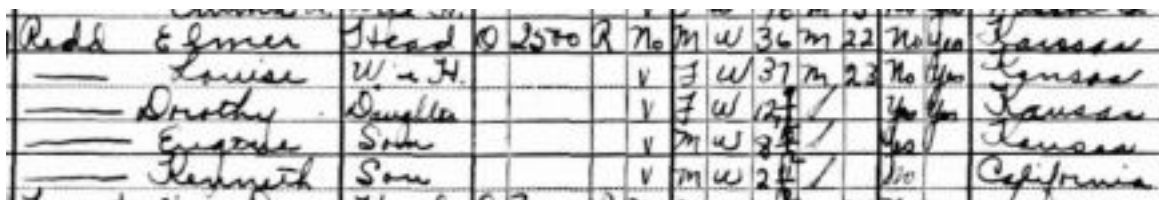 Redd Elmer Head O 2500 R No M W 36 M 22 No Yes Kansas
— Louise Wife H. V F W 37 M 23 No Yes Kansas
— Dorothy Daughter V F W 12 / Yes Yes Kansas
— Eugene Son V M W 8 / Yes Kansas
— Kenneth Son V M W 2 / No California